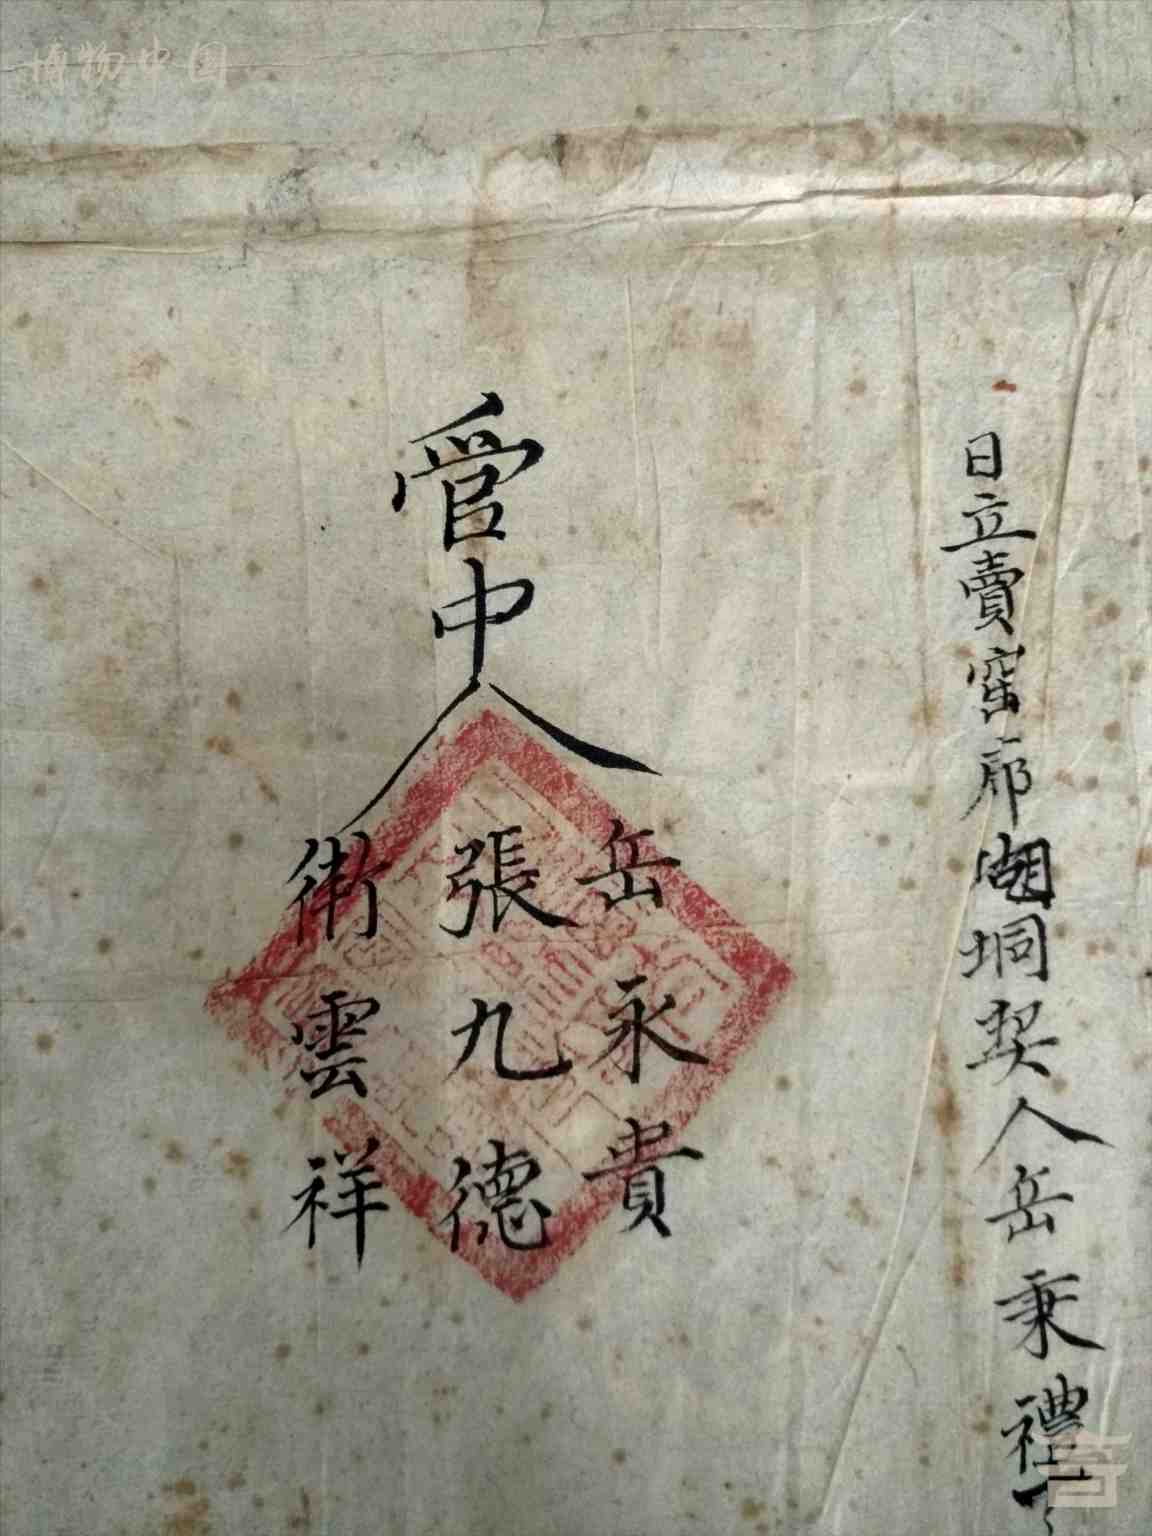 博物中国
日立賣窑廊衚垌契人岳秉禮
管中人
岳永貴
張九德
衛雲祥